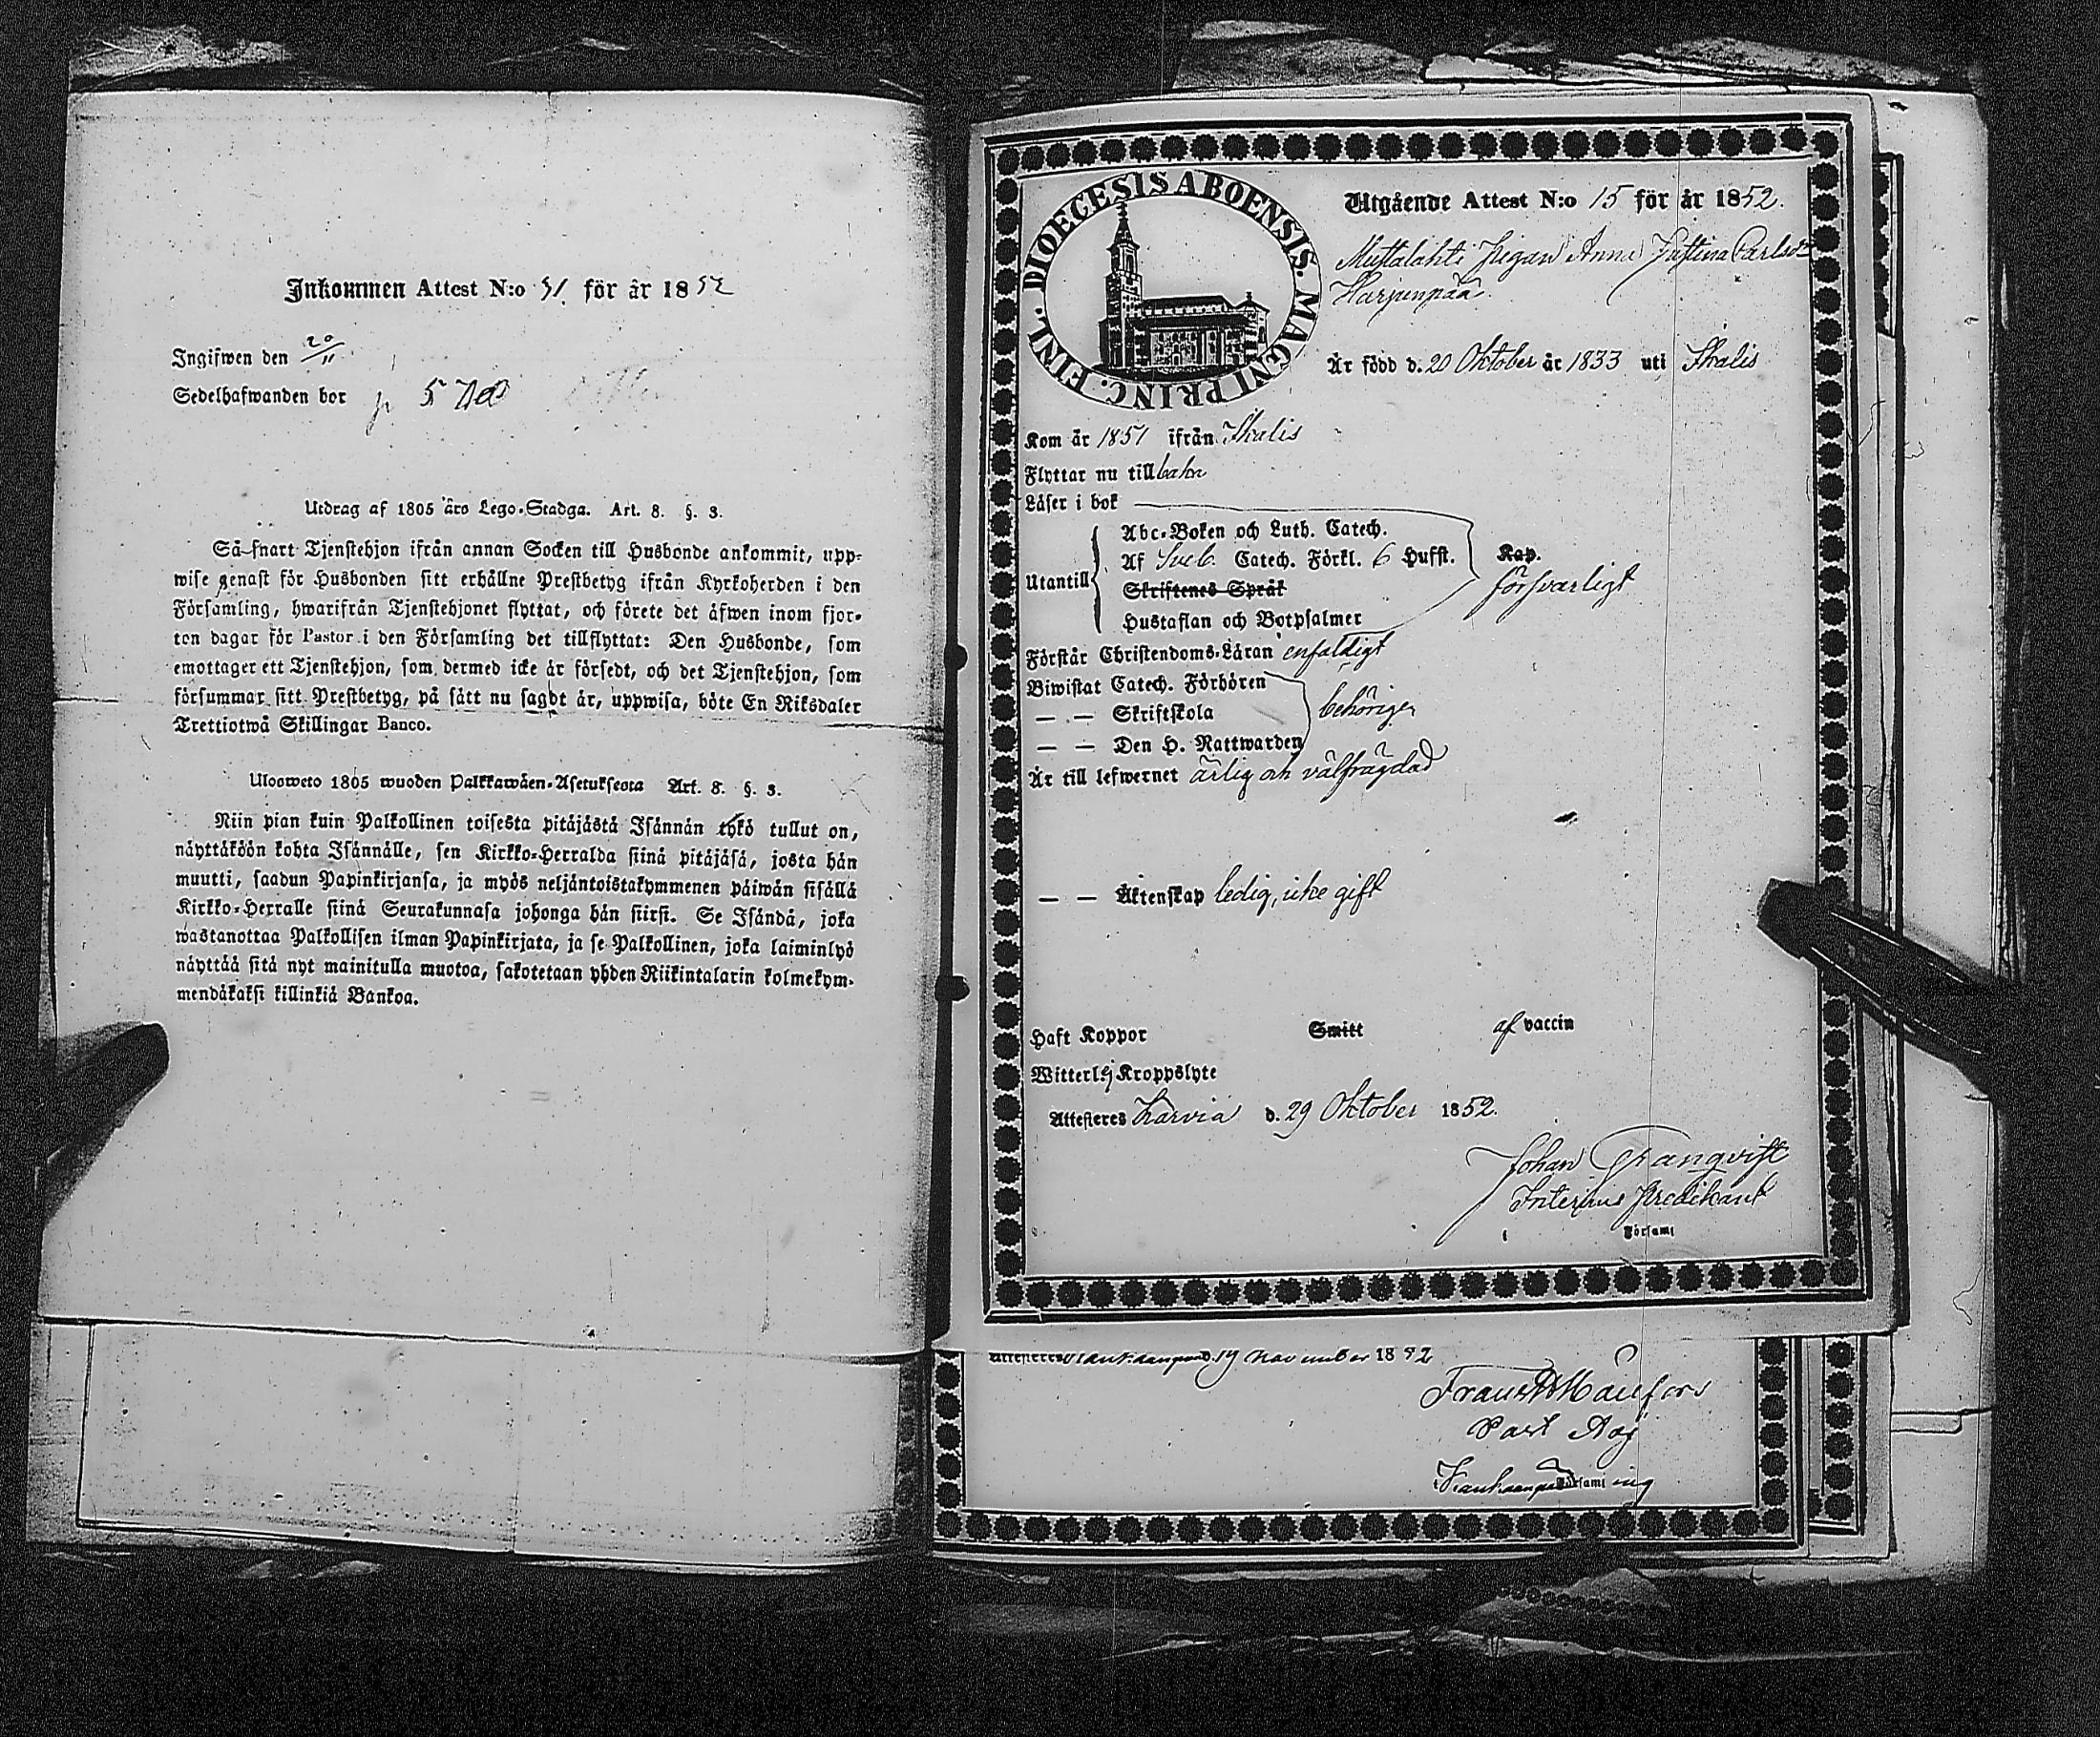 Inkommen Attest N:o 51. för år 1852
Ingifwen den 20/11
Sedelhafwanden bor p 5
Utdrag af 1805 års Lego-Stadga. Art. 8. §. 3.
Så snart Tjenstehjon ifrån annan Socken till Husbonde ankommit, upp-
wise genast för Husbonden sitt erhållne Prestbetyg ifrån Kyrkoherden i den
Församling, hwarifrån Tjenstehjonet flyttat, och förete det äfwen inom fjor-
ton dagar för Pastor i den Församling det tillflyttat: Den Husbonde, som
emottager ett Tjenstehjon, som dermed icke är försedt, och det Tjenstehjon, som
försummar sitt Prestbetyg, på sätt nu sagdt är, uppwisa, böte En Riksdaler
Trettiotwå Skillingar Banco.
Uloswето 1805 wuoden Palkkawäen-Asetuksesta Art. 8. §. 3.
Niin pian kuin Palkollinen toisesta pitäjästä Isännän tykö tullut on,
näyttäköön kohta Isännälle, sen Kirkko-Herralda siinä pitäjäsä, josta hän
muutti, saadun Papinkirjansa, ja myös neljäntoistakymmenen päiwän sisällä
Kirkko-Herralle siinä Seurakunnasa johonga hän siirsi. Se Isändä, joka
wastanottaa Palkollisen ilman Papinkirjata, ja se Palkollinen, joka laiminlyö
näyttää sitä nyt mainitulla muotoa, sakotetaan yhden Riikintalarin kolmekym-
mendäkaksi killinkiä Bankoa.
DIOECESIS ABOENSIS. MAGNI PRINC. FINL.
Utgående Attest N:o 15 för år 1852.
Mustalahti Pigan Anna Justina Carlsdr
Harjunpää.
Är född d. 20 Oktober år 1833 uti Ikalis
Kom år 1851 ifrån Ikalis
Flyttar nu till baka
Läser i bok
Utantill
Abc-Boken och Luth. Catech.
Af Sveb. Catech. Förkl. 6 Hufst.
Skriftenes Språk
Hustaflan och Botpsalmer
Kap.
försvarligt
Förstår Christendoms-Läran enfaldigt
Biwistat Catech. Förhören
— — Skriftskola
— — Den H. Nattwarden
behörigen
Är till lefwernet ärlig och välfrägdad
— — Äktenskap ledig, icke gift
Haft Koppor Smitt af vaccin
Witterl. ej Kroppslyte
Attesteres Karvia d. 29 Oktober 1852.
Johan Granqvist
Interims Predikant
Församl
Attesteres Kankaanpää d. 19 November 1852
Past Adj
Kankaanpää Församl ing